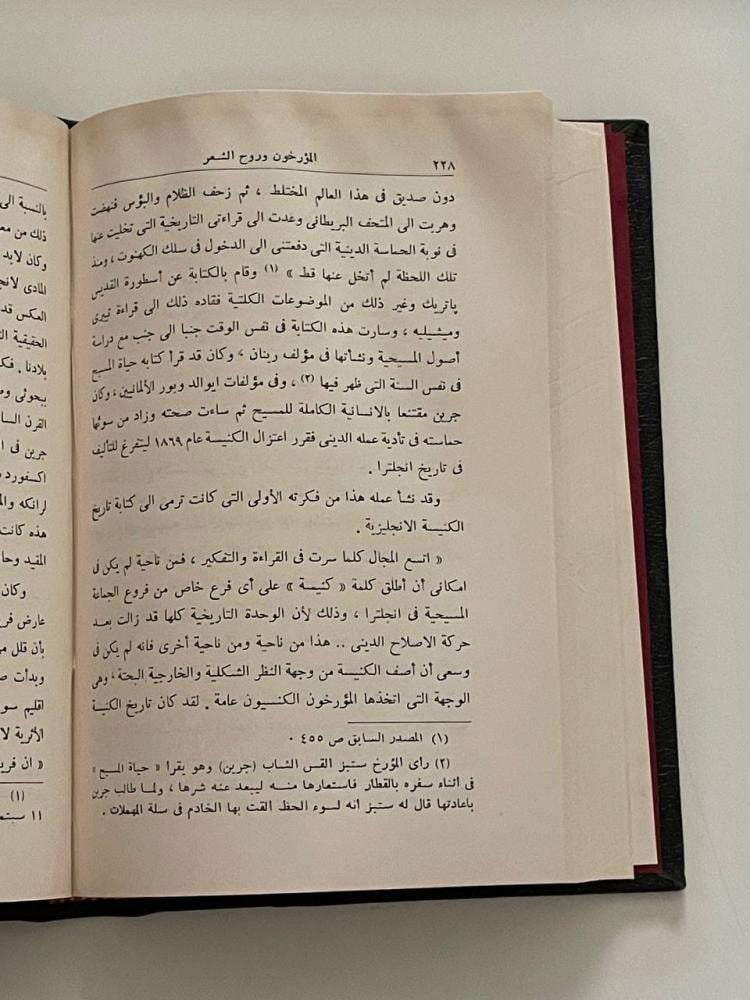 ٢٢٨
المؤرخون وروح الشعر
دون صديق في هذا العالم المختلط ، ثم زحف الظلام والبؤس فنهضت
وهربت الى المتحف البريطاني وعدت الى قراءتي التاريخية التي تخليت عنها
في نوبة الحماسة الدينية التي دفعتني الى الدخول في سلك الكهنوت ، ومنذ
تلك اللحظة لم أتخل عنها قط » (١) وقام بالكتابة عن أسطورة القديس
پاتريك وغير ذلك من الموضوعات الكلتية فقاده ذلك الى قراءة تييرى
وميشيليه ، وسارت هذه الكتابة في نفس الوقت جنبا الى جنب مع دراسة
أصول المسيحية ونشأتها في مؤلف رينان ، وكان قد قرأ كتابه حياة المسيح
في نفس السنة التي ظهر فيها (٢) ، وفي مؤلفات ايوالد وبور الألمانيين ، وكان
جرين مقتنعا بالانسانية الكاملة للمسيح ثم ساءت صحته وزاد من سوئها
حماسته في تأدية عمله الديني فقرر اعتزال الكنيسة عام ١٨٦٩ ليتفرغ للتأليف
في تاريخ انجلترا .
وقد نشأ عمله هذا من فكرته الأولى التي كانت ترمى الى كتابة تاريخ
الكنيسة الانجليزية .
« اتسع المجال كلما سرت في القراءة والتفكير ، فمن ناحية لم يكن في
امكانى أن أطلق كلمة « كنيسة » على أى فرع خاص من فروع الجماعة
المسيحية في انجلترا ، وذلك لأن الوحدة التاريخية كلها قد زالت بعد
حركة الاصلاح الدينى .. هذا من ناحية ومن ناحية أخرى فانه لم يكن في
وسعى أن أصف الكنيسة من وجهة النظر الشكلية والخارجية البحتة ، وهى
الوجهة التي اتخذها المؤرخون الكنسيون عامة . لقد كان تاريخ الكنيسة
(١) المصدر السابق ص ٤٥٥ .
(٢) رأى المؤرخ ستبز القس الشاب (جرين) وهو يقرأ « حياة المسيح »
في أثناء سفره بالقطار فاستعارها منه ليبعد عنه شرها ، ولما طالب جرين
باعادتها قال له ستبز أنه لسوء الحظ ألقت بها الخادم في سلة المهملات .
بالنسبة الى
ذلك من
وكان لابد
المادى
العكس
الحقيقية
بلادنا .
ببحوثى
القرن
جرين في
اكسفورد
لرانكه
هذه كانت
المقيد
وكان
عارض
بأن قلل
وبدأت
اقليم
الأثرية
« ان
(١)
١١